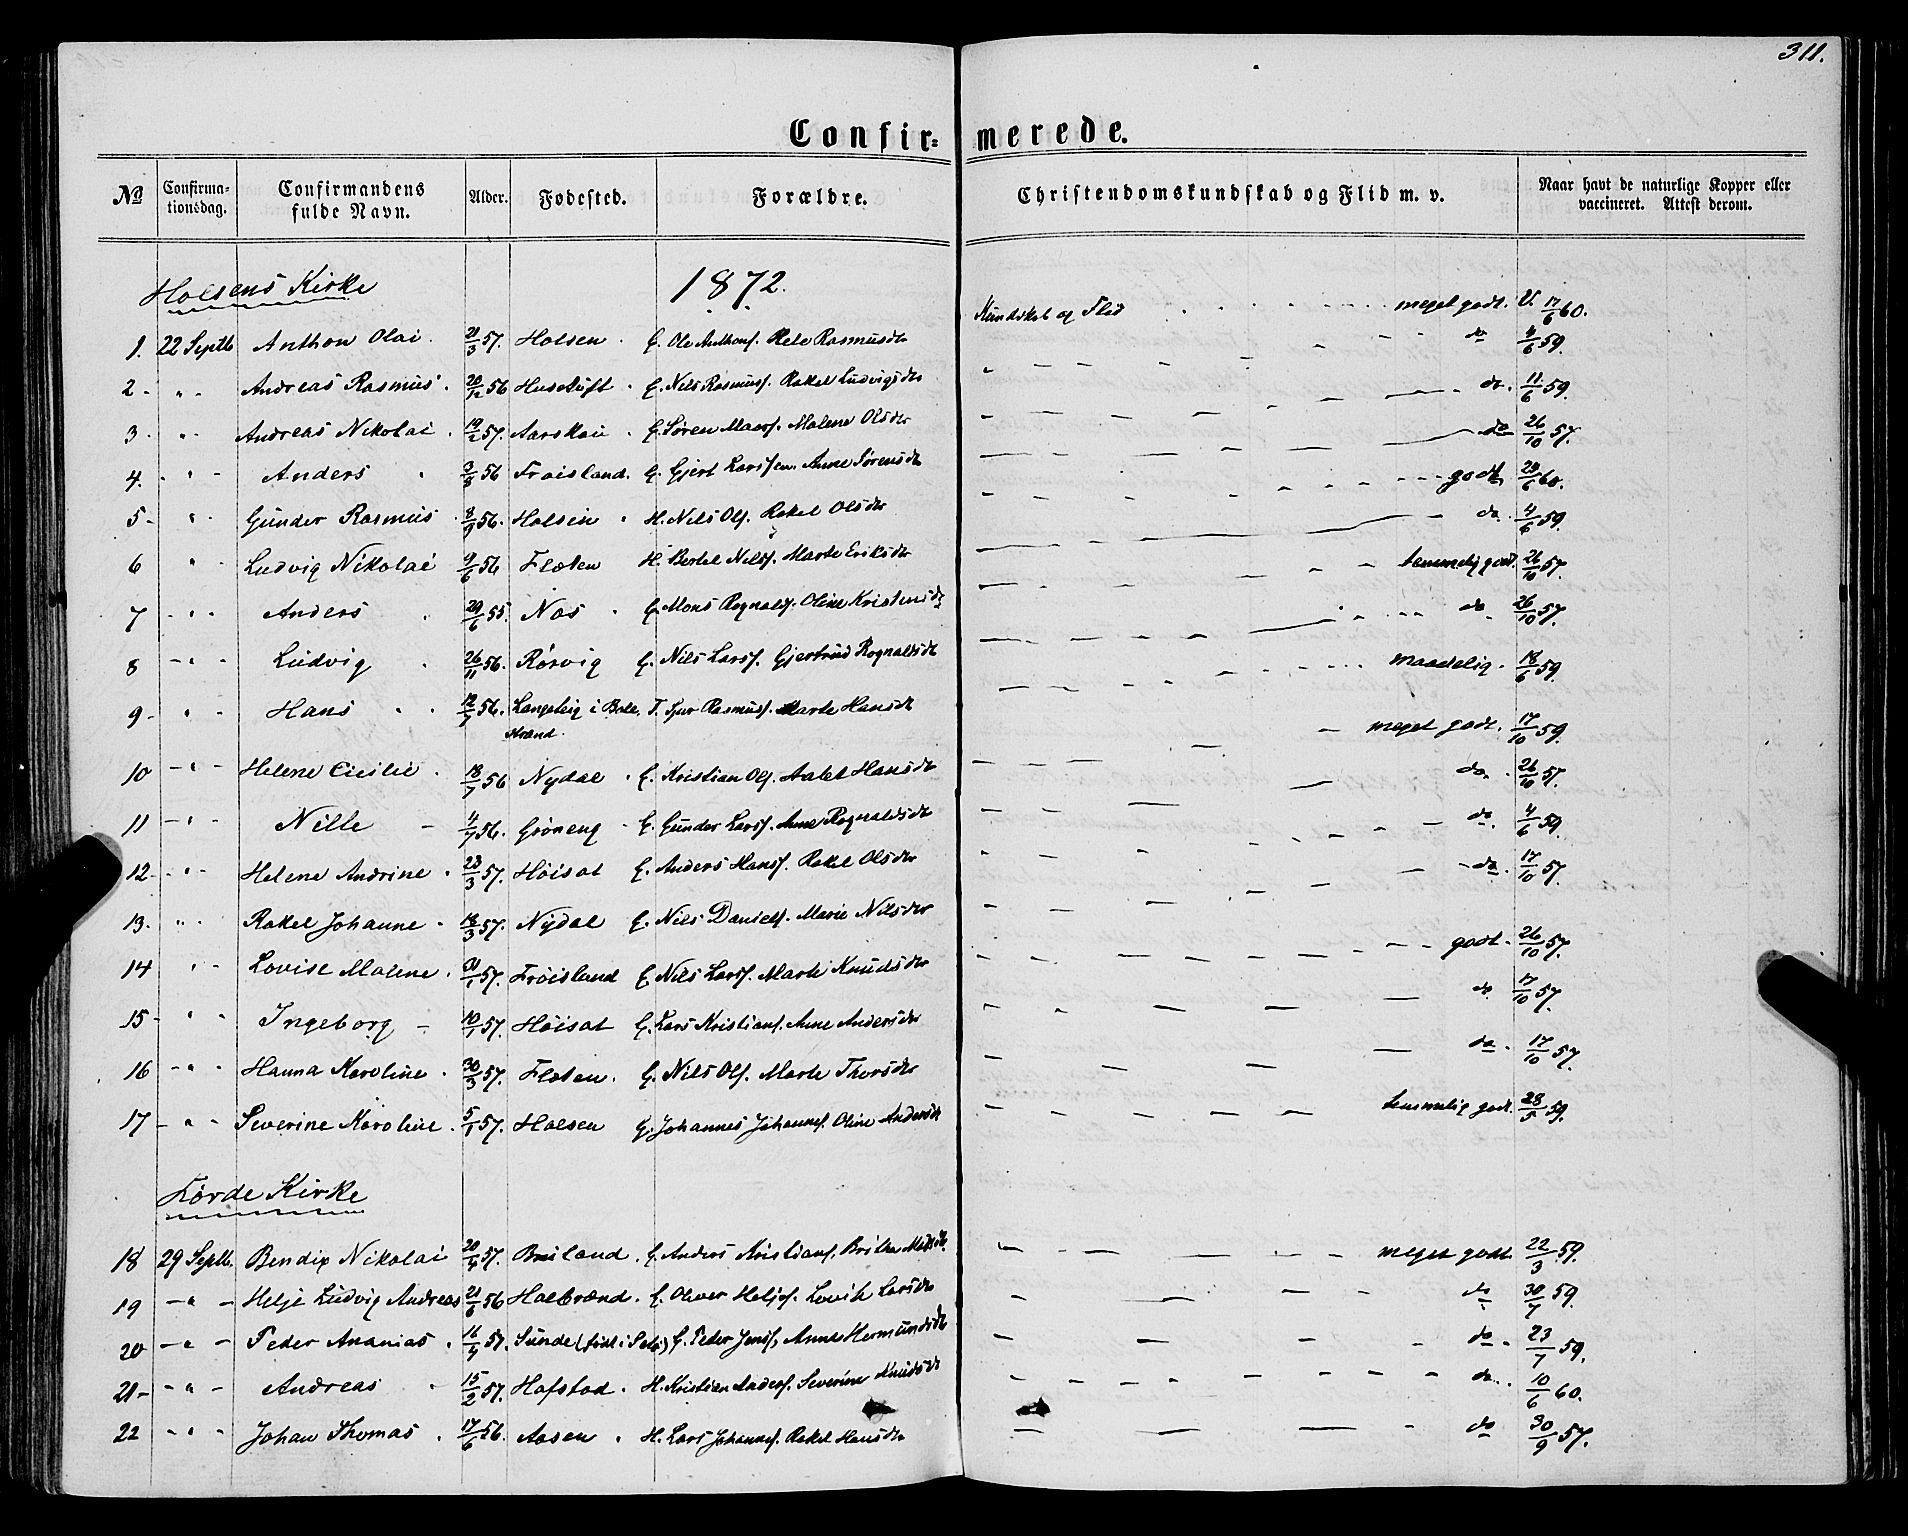 311.
Confirmerede.
No Confirmationsdag. Confirmandens fulde Navn. Alder. Fødested. Forældre. Christendomskundskab og Flid m. v. Naar havt de naturlige Kopper eller vaccineret. Attest derom.
Holsens Kirke 1872.
1. 22 Septb Anthon Olai. 21/3 57. Holsen. G. Ole Anthons. Rasmusdtr Kundskab og Flid meget godt. V. 17/6 60.
2 - " - Andreas Rasmus. 20/12 56 G. Nils Rasmuss. Rakel Ludvigsdtr do 4/6 59.
3 - " - Andreas Nikolai. 57. Aarskau. G. Søren Malene Olsdtr do. 11/6 59.
4. - " - Anders 3/3 56 Frøisland. G. Gjert Larssen. Anne Sørensdtr do 26/10 57.
5 - " - Gunder Rasmus. 8/9 56. Holsen. H. Nils Ols. Rakel Olsdtr godt 60.
6 " - Ludvig Nikolai 9/6 56 Flaten H. Bertel Nilss. Marte Eriksdtr do. 4/6 59.
7 - " - Anders 29/6 55. Nos. G. Mons Rognalds. Oline Kristensdtr temmelig godt. 26/10 57.
8 - " - Ludvig 26/11 56. Rørvig G. Nils Larss. Gjertrud Rognaldsdtr do 26/10 57.
9 - " - Hans 12/7 56. Langeteig i Bale- strand. T. Sjur Rasmuss. Marte Hansdtr maadelig. 18/6 59.
10 - " - Helene Cicilie. 18/7 56 Nydal. G. Kristian Ols. Aalet Hansdtr meget godt. 17/10 59.
11 - " - Nille - 4/7 56. Grøneng - G. Gunder Larss. Anne Rognaldsdtr do. 26/10 57.
12 - " - Helene Andrine. 23/3 57. Høisat G. Anders Hanss. Rakel Olsdtr do. 4/6 59.
13. " - Rakel Johanne. 18/3 57. Nydal G. Nils Daniels. Marie Nilsdtr do. 17/10 57.
14 " - Lovise Malene. 31/1 57. Frøisland G. Nils Larss. Marte Knudsdtr godt. 26/10 57.
15 - " - Ingeborg - 10/1 57. Høisat G. Lars Kristians. Anne Andersdtr do. 17/10 57.
16 - " - Hanna Karoline. 30/3 57. Flaten. G. Nils Ols. Marte Thorsdtr do. 17/10 57.
17 - " - Severine Karoline. 5/1 57. Holsen G. Johannes Johanness. Oline Andersdtr temmelig godt. 28/5 59.
Førde Kirke
18 29 Septb. Bendix Nikolai 20/4 57. Bruland. G. Anders Kristians. Brithe meget godt. 22/3 59.
19 - " - Helje Ludvig Andreas 21/6 56 Halbrænd. G. Oliver Heljes. Lovise Larsdtr do 30/7 59.
20 - " - Peder Ananias. 16/4 57. Sunde (født i ) G. Peder Jenss. Anna Hermundsdtr do 23/7 59.
21 - " - Andreas 15/2 57. Hafstad. H. Kristian Anders. Severine Knudsdtr do. 10/6 60.
22 " - Johan Thomas. 17/6 56. Aasen. H. Lars Johanness. Rakel Hansdtr do 30/9 57.